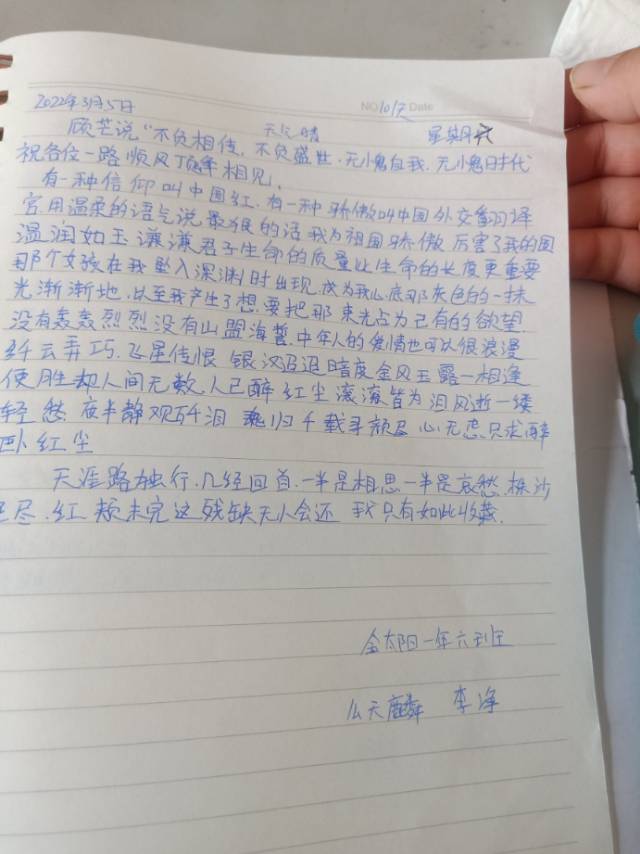 2022年3月5日 NO 10/天 Date
天气晴 星期六
顾芒说“不负相传，不负盛世，无愧自我，无愧时代
祝各位一路顺风顶峰相见，
有一种信仰叫中国红，有一种骄傲叫中国外交翻译
官用温柔的语气说最狠的话 我为祖国骄傲 厉害了我的国
温润如玉谦谦君子生命的质量比生命的长度更重要
那个女孩在我坠入深渊时出现，成为我心底那灰色的一抹
光渐渐地，以至我产生了想，要把那束光占为己有的欲望
没有轰轰烈烈没有山盟海誓，中年人的爱情也可以很浪漫
纤云弄巧，飞星传恨 银汉迢迢暗度金风玉露一相逢
便胜却人间无数，人已醉 红尘滚滚皆为泪风逝一缕
轻愁 夜半静观 泪 魂归千载寻颜尽 心无恋只求醉
卧红尘
天涯路独行，几经回首，一半是相思一半是哀愁，
尽，红颜未完这残缺天小会还 我只有如此收藏.
金太阳一年六班
么天麟 李净